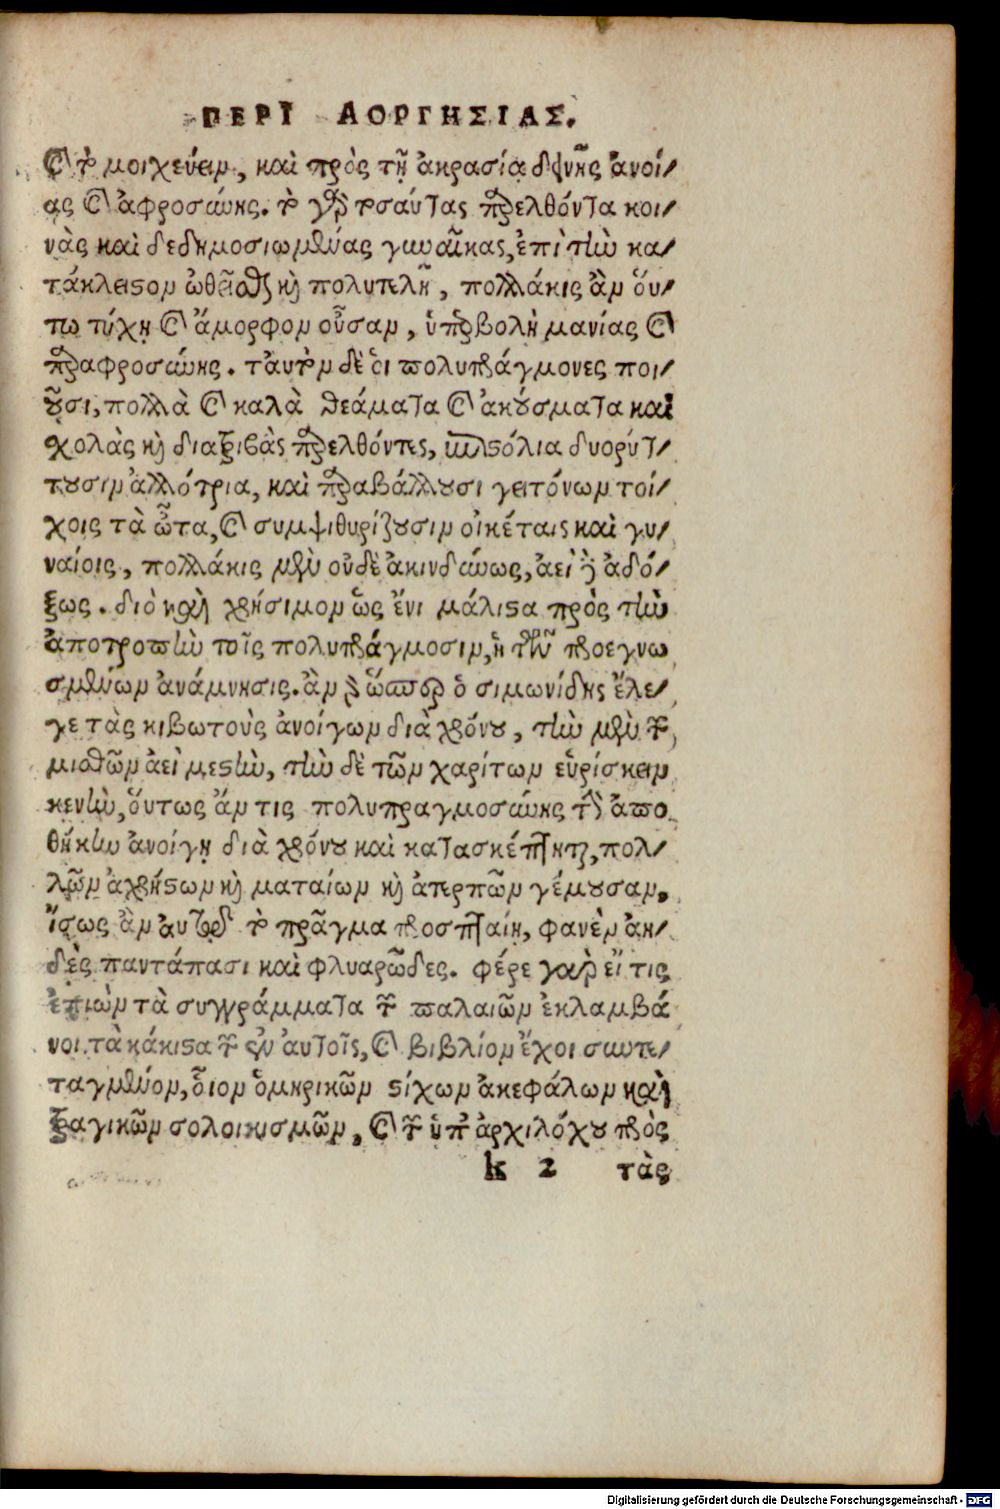 ΠΕΡΙ ΑΟΡΓΗΣΙΑΣ.
καὶ τὸ μοιχεύειν, καὶ πρὸς τῇ ἀκρασίᾳ δεινῆς ἀνοί/
ας καὶ ἀφροσύνης. τὸ γὰρ τοσαύτας παρελθόντα κοι/
νὰς καὶ δεδημοσιωμένας γυναῖκας, ἐπὶ τὴν κα/
τάκλειστον ὠθεῖσθαι καὶ πολυτελῆ, πολλάκις ἂν οὕ/
τω τύχῃ καὶ ἄμορφον οὖσαν, ὑπερβολὴ μανίας καὶ
παραφροσύνης. ταυτὸν δὲ οἱ πολυπράγμονες ποι/
οῦσι, πολλὰ καὶ καλὰ θεάματα καὶ ἀκούσματα καὶ
σχολὰς καὶ διατριβὰς παρελθόντες, ἐπιστόλια διορύτ/
τουσιν ἀλλότρια, καὶ παραβάλλουσι γειτόνων τοί/
χοις τὰ ὦτα, καὶ συμψιθυρίζουσιν οἰκέταις καὶ γυ/
ναίοις, πολλάκις μὲν οὐδὲ ἀκινδύνως, ἀεὶ δὲ ἀδό/
ξως. διὸ καὶ χρήσιμον ὡς ἔνι μάλιστα πρὸς τὴν
ἀποτροπὴν τοῖς πολυπράγμοσιν, ἡ τῶν προεγνω
σμένων ἀνάμνησις. ἂν γὰρ ὥσπερ ὁ σιμωνίδης ἔλε/
γε τὰς κιβωτοὺς ἀνοίγων διὰ χρόνου, τὴν μὲν τῶν
μισθῶν ἀεὶ μεστὴν, τὴν δὲ τῶν χαρίτων εὑρίσκειν
κενὴν, οὕτως ἄν τις πολυπραγμοσύνης τὴν ἀπο
θήκην ἀνοίγῃ διὰ χρόνου καὶ κατασκέπτηται, πολ/
λῶν ἀχρήστων καὶ ματαίων καὶ ἀτερπῶν γέμουσαν,
ἴσως ἂν αὐτῷ τὸ πρᾶγμα προσπταίη, φανὲν ἀη/
δὲς παντάπασι καὶ φλυαρῶδες. φέρε γὰρ εἴ τις
ἐπιὼν τὰ συγγράμματα τῶν παλαιῶν ἐκλαμβά
νοι τὰ κάκιστα τῶν ἐν αὐτοῖς, καὶ βιβλίον ἔχοι συντε/
ταγμένον, οἷον ὁμηρικῶν στίχων ἀκεφάλων καὶ
τραγικῶν σολοικισμῶν, καὶ τῶν ὑπ' ἀρχιλόχου πρὸς
k 2 τὰς
Digitalisierung gefördert durch die Deutsche Forschungsgemeinschaft - DFG